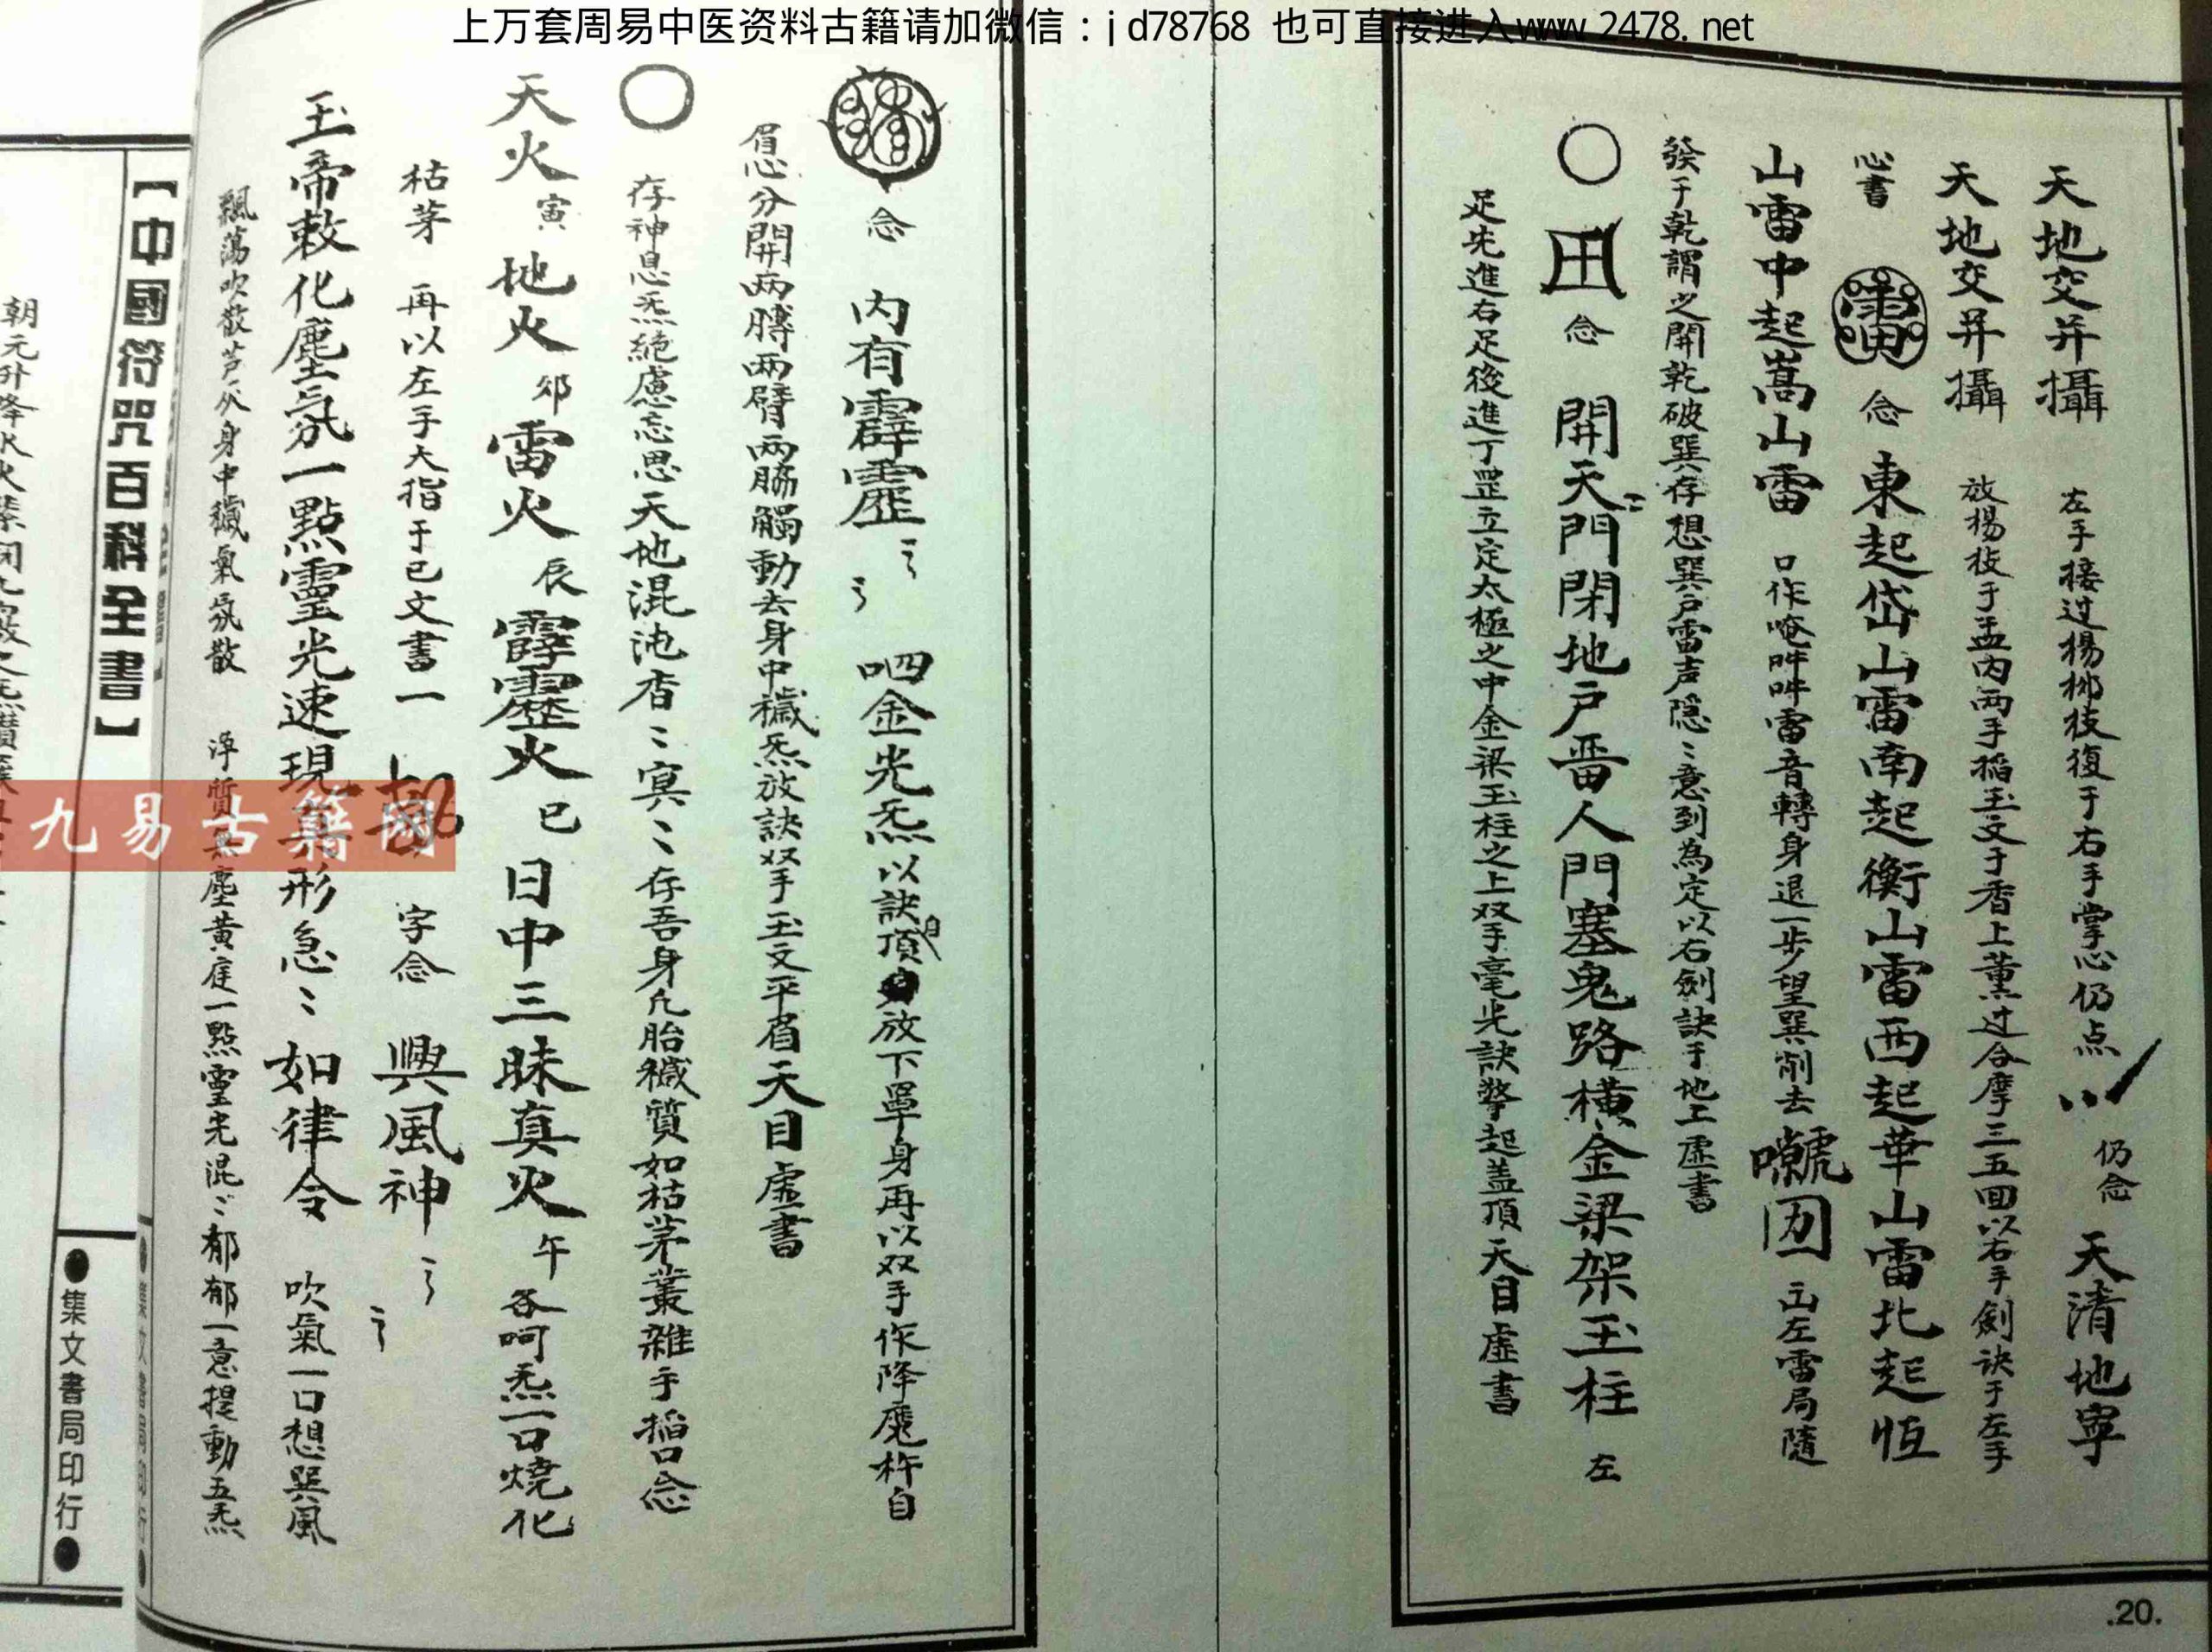 上万套周易中医资料古籍请加微信：jd78768 也可直接进入www.2478.net
天地交并攝 左手接过楊柳枝復于右手掌心仍点 仍念 天清地寧
天地交并攝 放楊枝于盂内两手搯玉文于香上薰过合摩三五回以右手劍诀于左手
心書 念 東起岱山雷南起衡山雷西起華山雷北起恆
山雷中起嵩山雷 口作唵吽吽雷音轉身退一步望巽削去 左雷局隨
發于乾謂之開乾破巽存想巽户雷声隠〻意到為定以右劍訣于地上虚書
念 開天門閉地户畱人門塞鬼路橫金梁架玉柱 左
足先進右足後進丁罡立定太極之中金梁玉柱之上双手毫光訣擎起盖頂天目虚書
.20.
念 内有霹靂 呬金光炁以訣自頂放下單身再以双手作降魔杵自
眉心分開两膊两臂两脇觸動去身中穢炁放訣双手玉文平眉天目虚書
存神息炁絶慮忘思天地混沌杳〻冥〻存吾身凢胎穢質如枯茅叢雜手搯口念
天火寅地火夘雷火辰霹靂火巳日中三昧真火午各呵炁一口燒化
枯茅 再以左手大指于巳文書一 字念 興風神
玉帝敕化塵氛一點靈光速現真形急〻如律令 吹氣一口想巽風
飄蕩吹散芦灰身中穢氣氛散 淨質無塵黄庭一點靈光混〻郁郁一意提動五炁
【中國符咒百科全書】
●集文書局印行●
九易古籍网